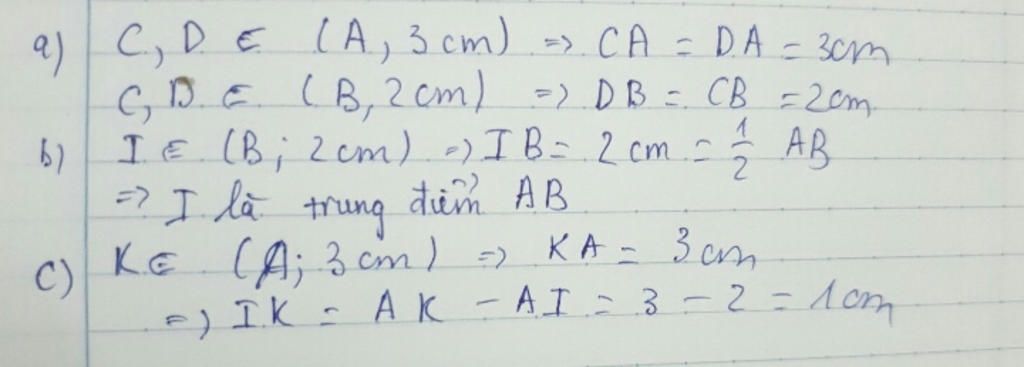 a) C, D ∈ (A, 3 cm) => CA = DA = 3cm
C, D ∈ (B, 2 cm) => DB = CB = 2cm
b) I ∈ (B; 2 cm) => IB = 2 cm = 1/2 AB
=> I là trung điểm AB
c) K ∈ (A; 3 cm) => KA = 3 cm
=> IK = AK - AI = 3 - 2 = 1 cm